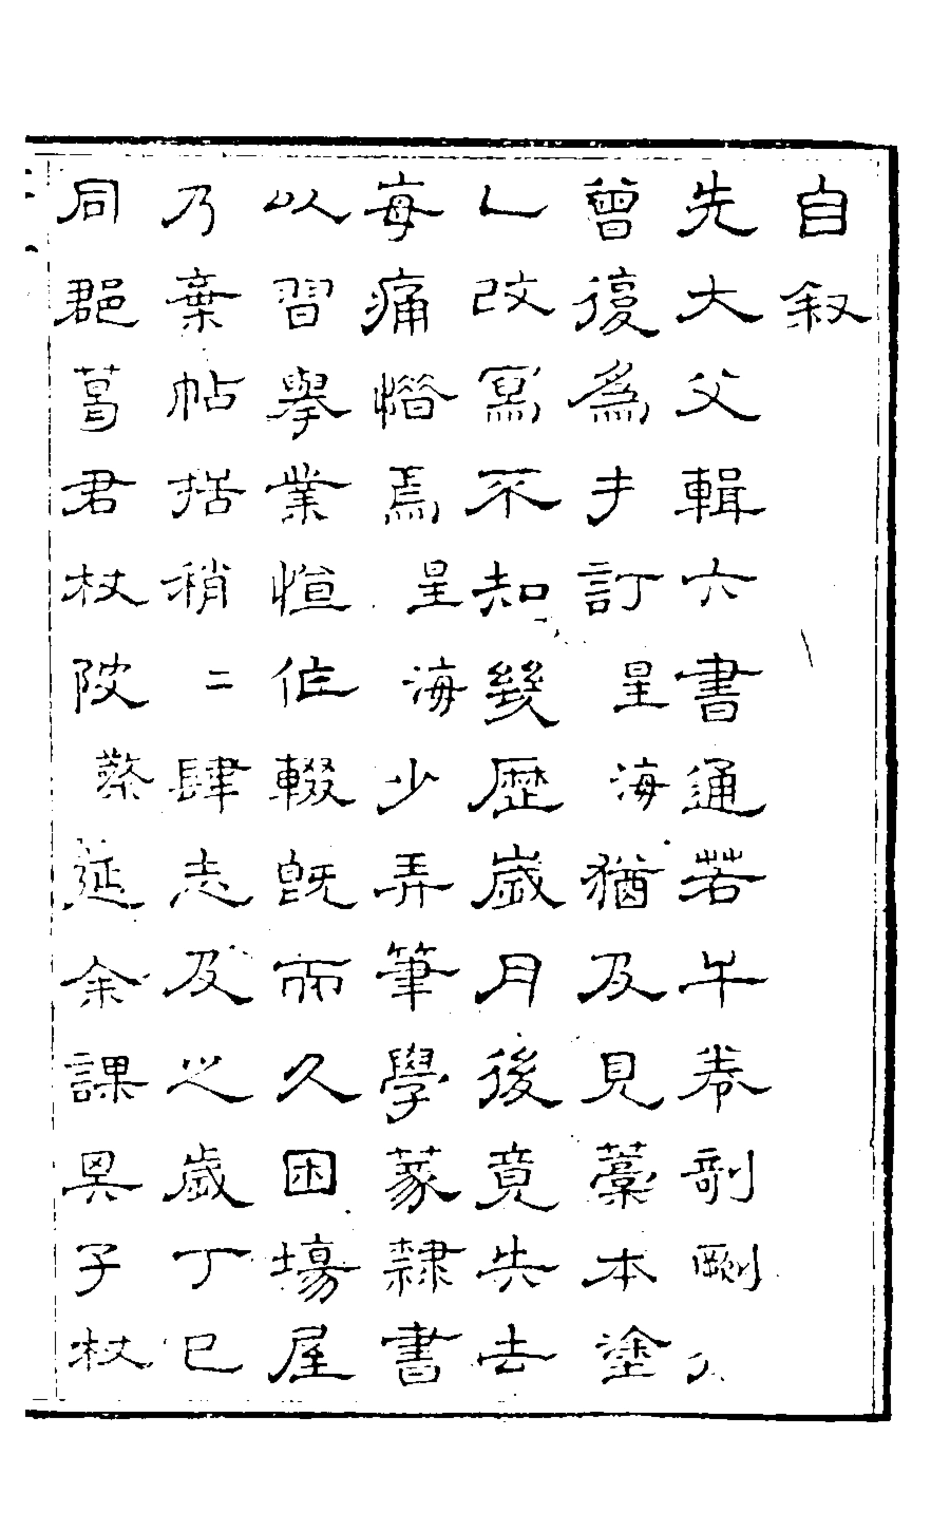 自叙
先大父輯六書通若干卷剞劂
曾復為手訂星海猶及見藁本塗
乙改寫不知幾歷歲月後竟失去
每痛惜焉星海少弄筆學篆隸書
以習舉業恒作輟既而久困場屋
乃棄帖括稍二肆志及之歲丁巳
同郡葛君杖陂延余課其子杖